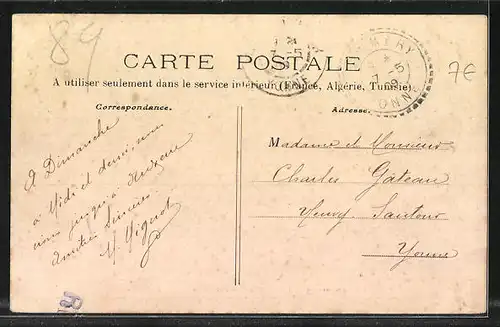 89
7€
CARTE POSTALE
A utiliser seulement dans le service intérieur (France, Algérie, Tunisie)
Correspondance.
Adresse.
A Dimanche
à Midi et demi, nous
irons jusqu'à
Amitiés
Madame et Monsieur
Charles Gateau
Neuvy Sautour
Yonne
YONNE